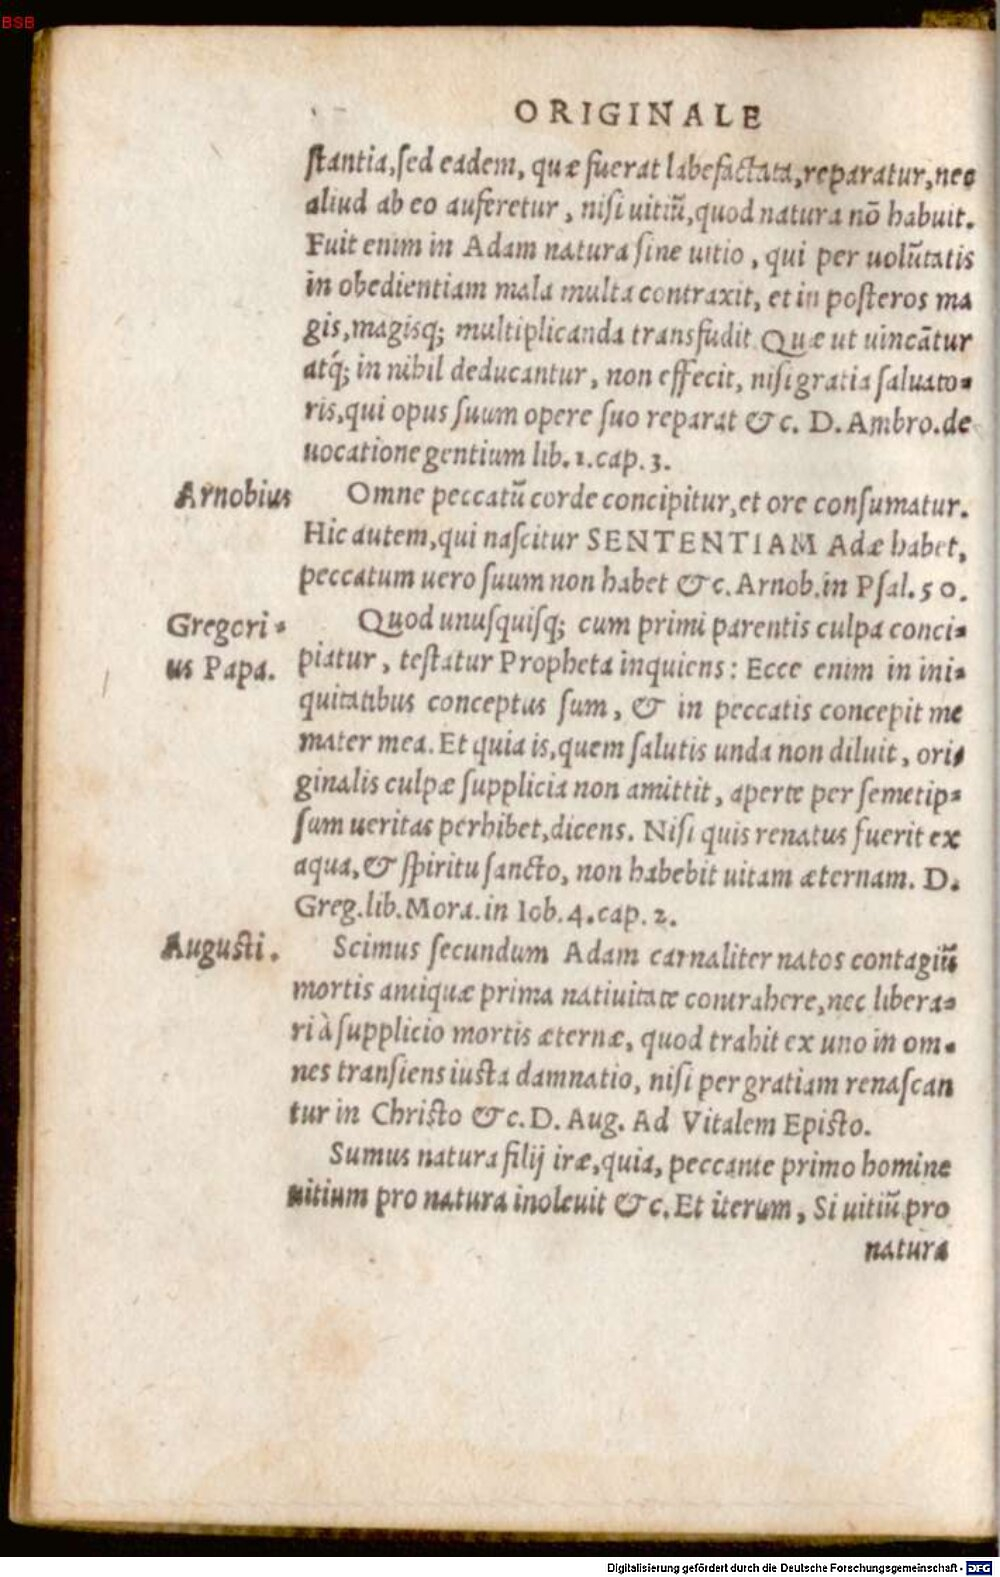 BSB
ORIGINALE
stantia, sed eadem, quæ fuerat labefactata, reparatur, nec
aliud ab eo auferetur, nisi uitiũ, quod natura nõ habuit.
Fuit enim in Adam natura sine uitio, qui per uolũtatis
in obedientiam mala multa contraxit, et in posteros ma
gis, magisq; multiplicanda transfudit. Quæ ut uincãtur
atq́; in nihil deducantur, non effecit, nisi gratia saluato-
ris, qui opus suum opere suo reparat & c. D. Ambro. de
uocatione gentium lib. 1. cap. 3.
Arnobius
Omne peccatũ corde concipitur, et ore consumatur.
Hic autem, qui nascitur SENTENTIAM Adæ habet,
peccatum uero suum non habet & c. Arnob. in Psal. 50.
Gregori-
us Papa.
Quod unusquisq; cum primi parentis culpa conci-
piatur, testatur Propheta inquiens: Ecce enim in ini-
quitatibus conceptus sum, & in peccatis concepit me
mater mea. Et quia is, quem salutis unda non diluit, ori-
ginalis culpæ supplicia non amittit, aperte per semetip-
sum ueritas perhibet, dicens. Nisi quis renatus fuerit ex
aqua, & spiritu sancto, non habebit uitam æternam. D.
Greg. lib. Mora. in Iob. 4. cap. 2.
Augusti.
Scimus secundum Adam carnaliter natos contagiũ
mortis antiquæ prima natiuitate contrahere, nec libera-
ri à supplicio mortis æternæ, quod trahit ex uno in om-
nes transiens iusta damnatio, nisi per gratiam renascan
tur in Christo & c. D. Aug. Ad Vitalem Episto.
Sumus natura filij iræ, quia, peccante primo homine
uitium pro natura inoleuit & c. Et iterum, Si uitiũ pro
natura
Digitalisierung gefördert durch die Deutsche Forschungsgemeinschaft - DFG